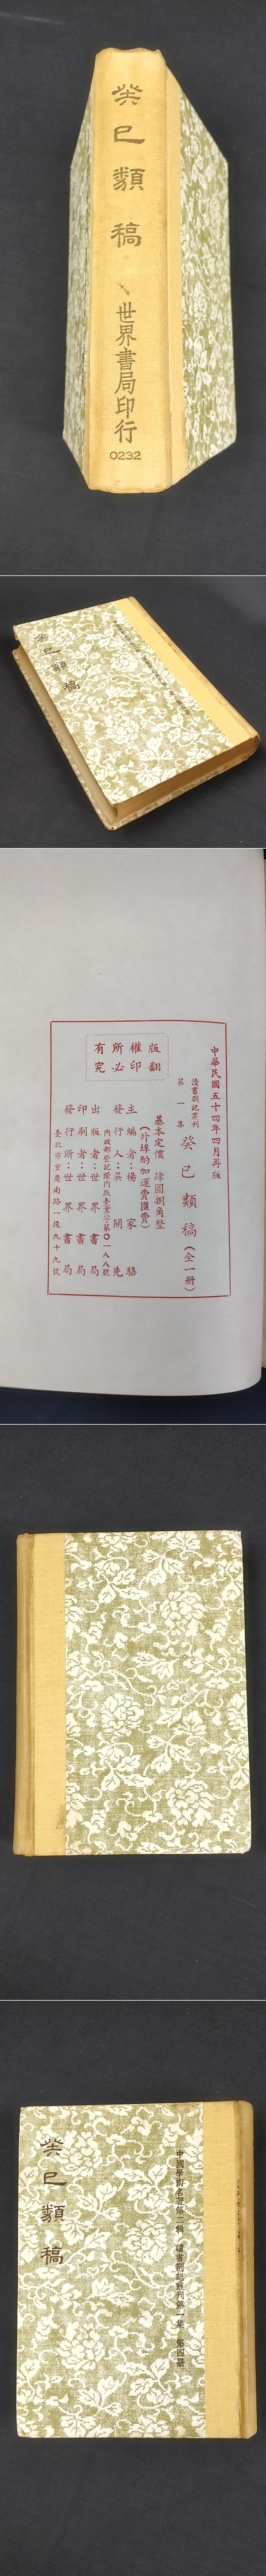 癸巳類稿
世界書局印行
0232
癸巳類稿
中華民國五十四年四月再版
讀書劄記叢刊
第一集
癸巳類稿（全一冊）
基本定價 肆圓捌角整
（外埠酌加運費匯費）
主編者：楊家駱
發行人：吳開先
內政部登記證內版臺業字第〇一八八號
出版者：世界書局
印刷者：世界書局
發行所：世界書局
臺北市重慶南路一段九十九號
版權所有
翻印必究
中國學術名著第二輯 讀書劄記叢刊第一集 第四冊
癸巳類稿